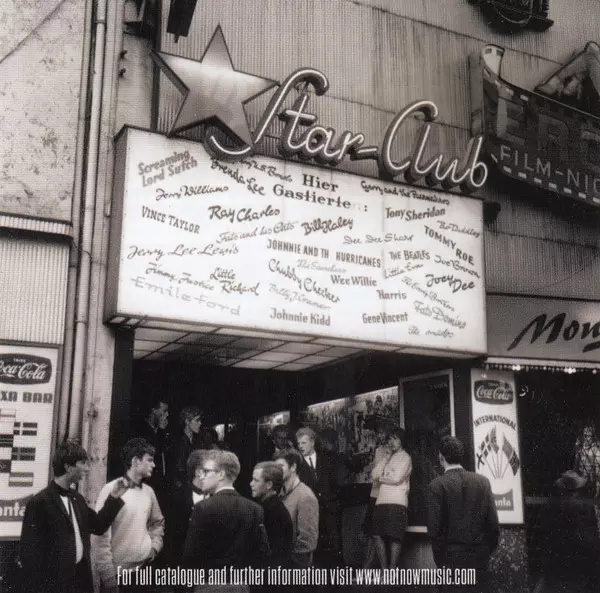 Star-Club
FILM-NIG
Screaming
Lord Sutch
Brenda Lee
Hier
Gastierten:
Gerry and the Pacemakers
Jerry Williams
VINCE TAYLOR
Ray Charles
Fats and his Cats
Bill Haley
Tony Sheridan
TOMMY
ROE
Jerry Lee Lewis
JOHNNIE AND TH HURRICANES
Dee Dee Sharp
THE BEATLES
Little Eva
Joey
Dee
Jimmy Justice
Little
Richard
Chubby
Checker
Wee Willie
Harris
Emile Ford
Billy J. Kramer
Johnnie Kidd
Gene Vincent
Fats
Domino
Coca-Cola
XA BAR
anta
Coca-Cola
INTERNATIONAL
anta
For full catalogue and further information visit www.notnowmusic.com